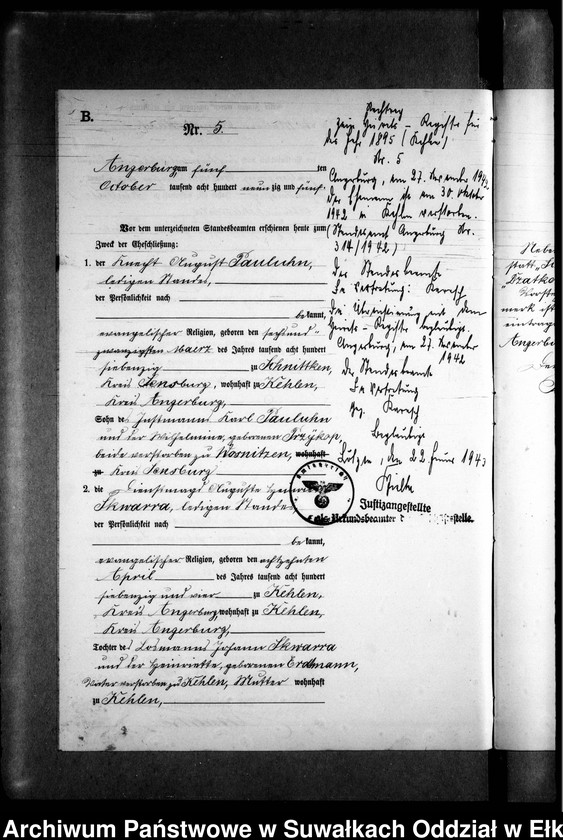 B.
Nr. 5.
Angerburg am fünf ten
October tausend acht hundert neunzig und fünf.
Vor dem unterzeichneten Standesbeamten erschienen heute zum
Zweck der Eheschließung:
1. der Knecht August Pauluhn,
ledigen Standes,
der Persönlichkeit nach
bekannt,
evangelischer Religion, geboren den sechsund-
zwanzigsten Maerz des Jahres tausend acht hundert
siebenzig zu Schnittken,
Kreis Sensburg, wohnhaft zu Kehlen,
Kreis Angerburg,
Sohn des Instmanns Karl Pauluhn
und der Wilhelmine, geborenen Przykop,
beide verstorben zu Kosnitzen, wohnhaft
zu Kreis Sensburg
2. die Dienstmagd Auguste
Skwarra, ledigen Standes
der Persönlichkeit nach
bekannt,
evangelischer Religion, geboren den achtzehnten
April des Jahres tausend acht hundert
siebenzig und vier zu Kehlen,
Kreis Angerburg, wohnhaft zu Kehlen,
Kreis Angerburg,
Tochter des Losmanns Johann Skwarra
und der Heinriette, geborenen Erdmann,
Vater verstorben zu Kehlen, Mutter wohnhaft
zu Kehlen,
Nachtrag
zum Heirats-Register für
das Jahr 1895 (Kehlen)
Nr. 5
Angerburg, am 27. Dezember 1942.
Der Ehemann ist am 30. Oktober
1942 in Kehlen verstorben.
(Standesamt Angerburg Nr.
314/1942)
Der Standesbeamte
In Vertretung:
Die Übereinstimmung mit dem
Heirats-Register beglaubigt.
Angerburg, am 27. Dezember
1942
Der Standesbeamte
In Vertretung
gez.
Beglaubigt
Lötzen, den 22 Januar 1943
Amtsgericht
Justizangestellte
als Urkundsbeamter
Archiwum Państwowe w Suwałkach Oddział w Ełk